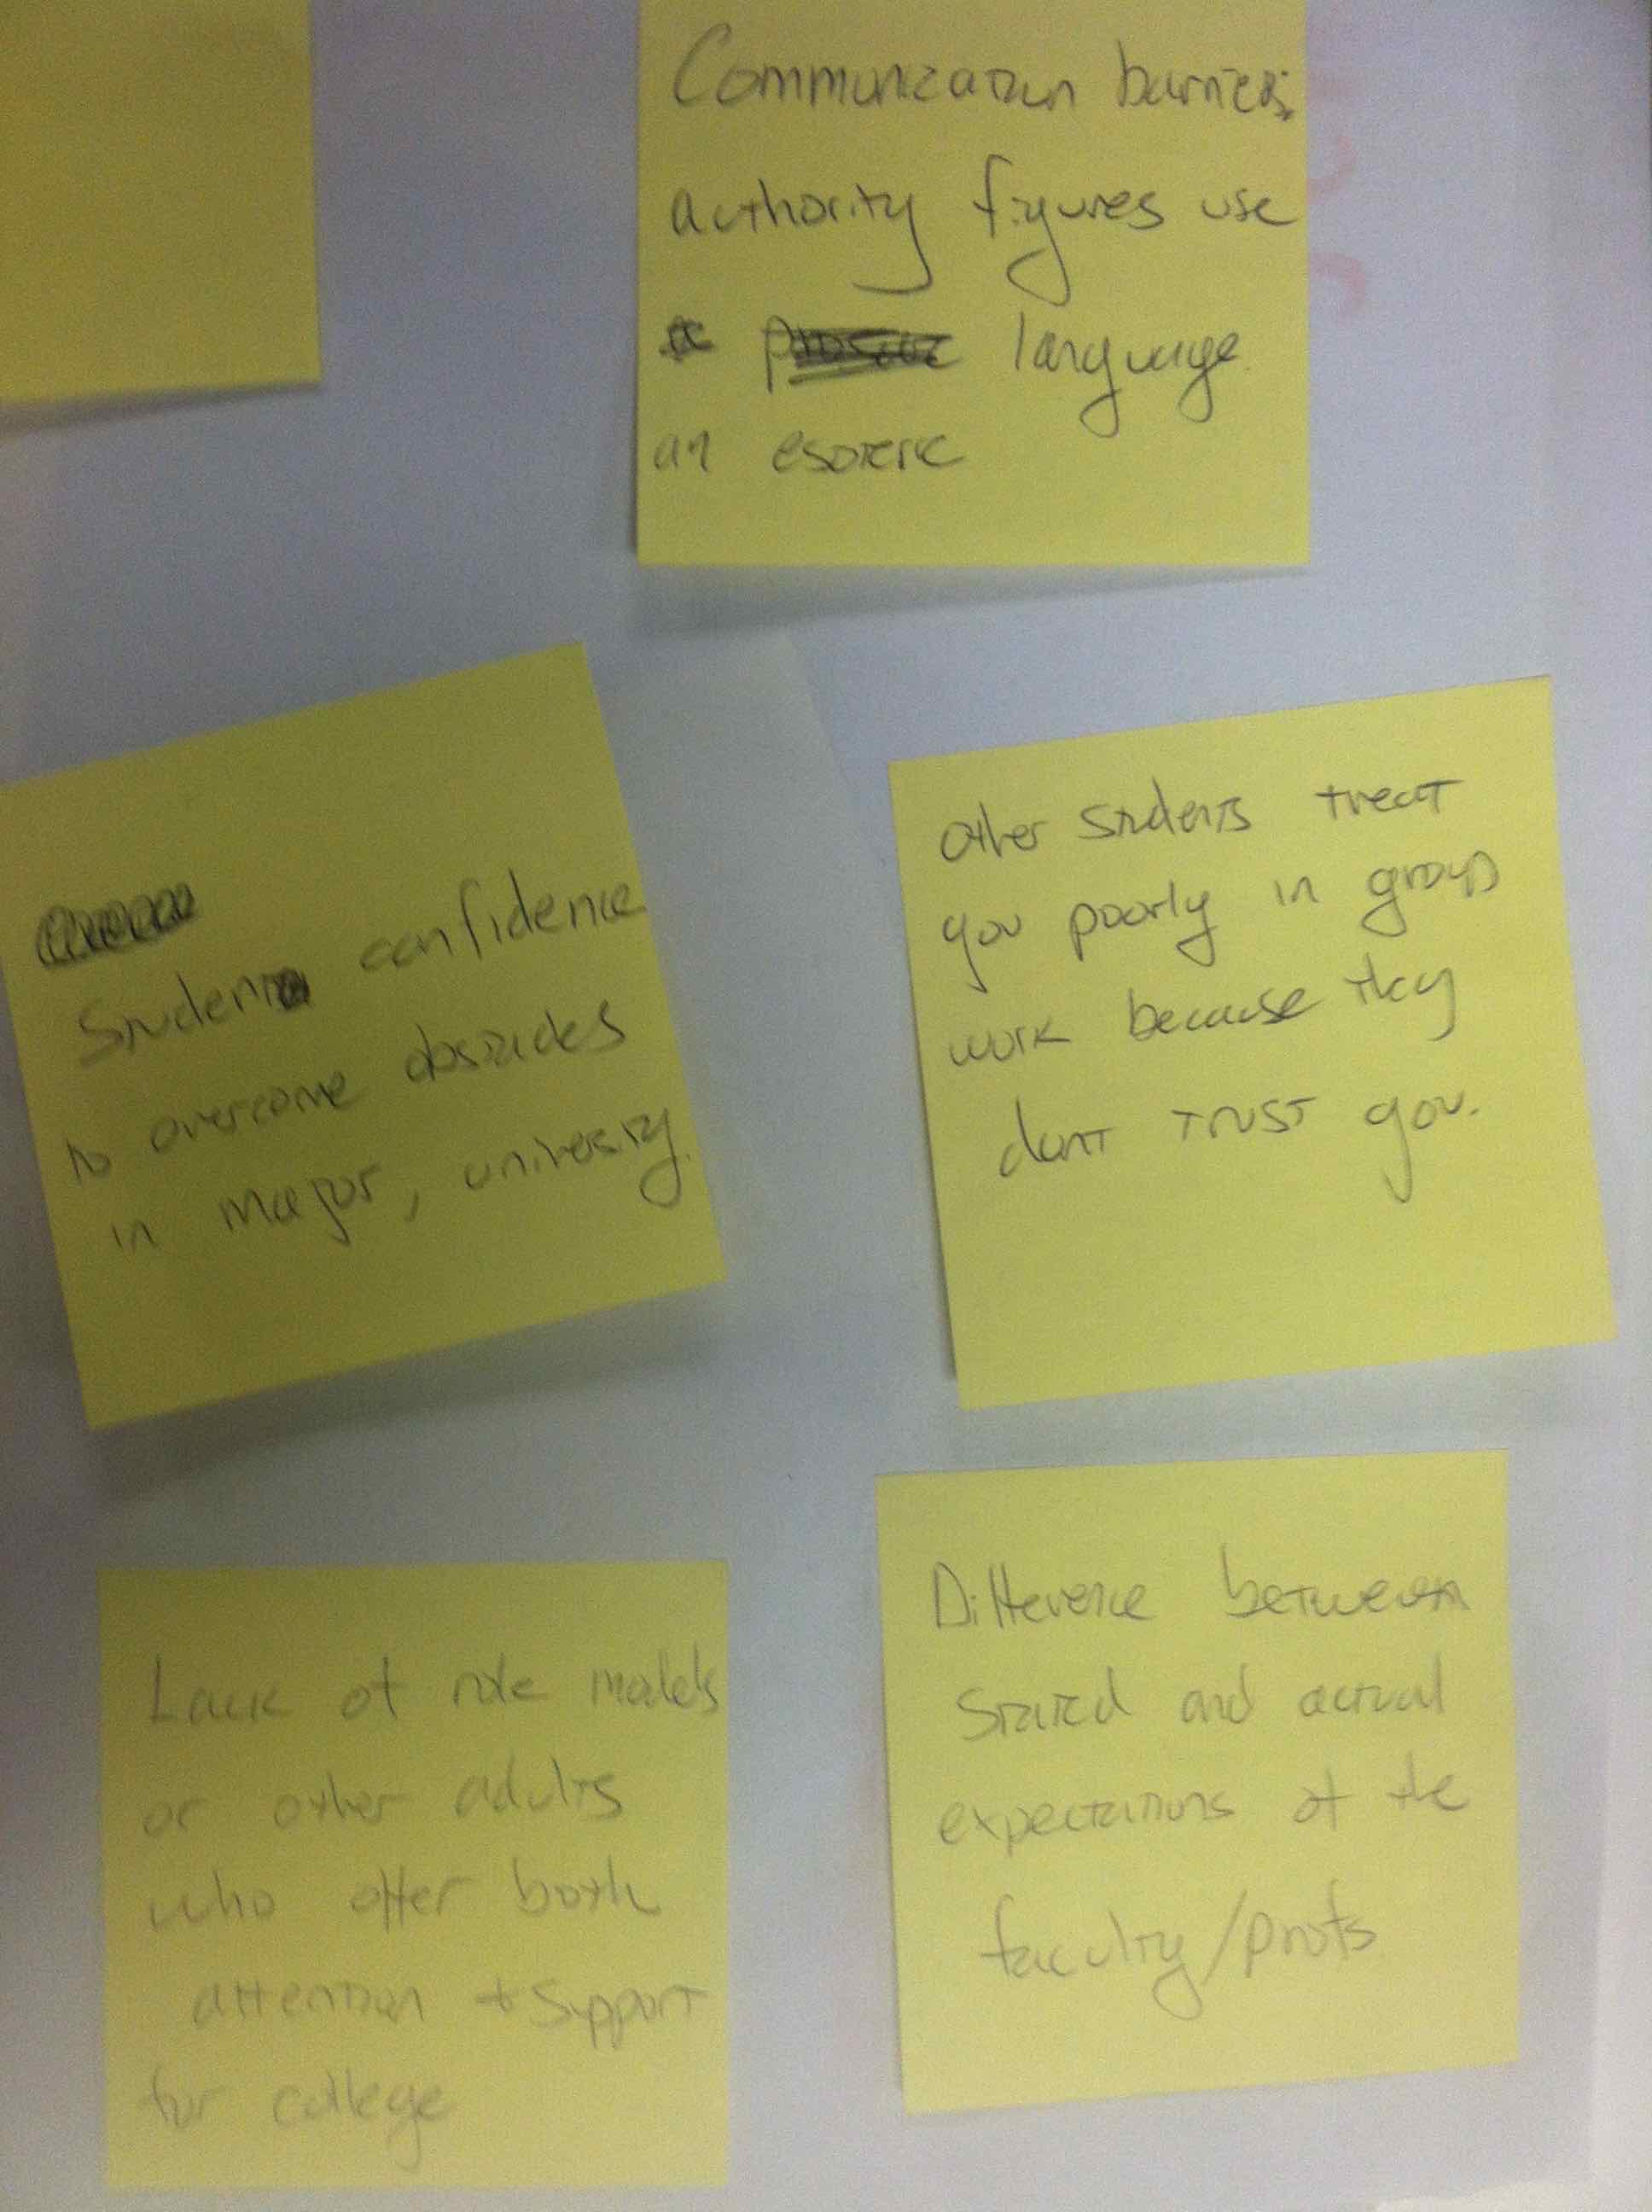 Communication barriers:
authority figures use
language
an esoteric
Student confidence
to overcome obstacles
in major, university.
Other students treat
you poorly in group
work because they
dont trust you.
Lack of role models
or other adults
who offer both
attention + support
for college
Difference between
stated and actual
expectations of the
faculty/profs